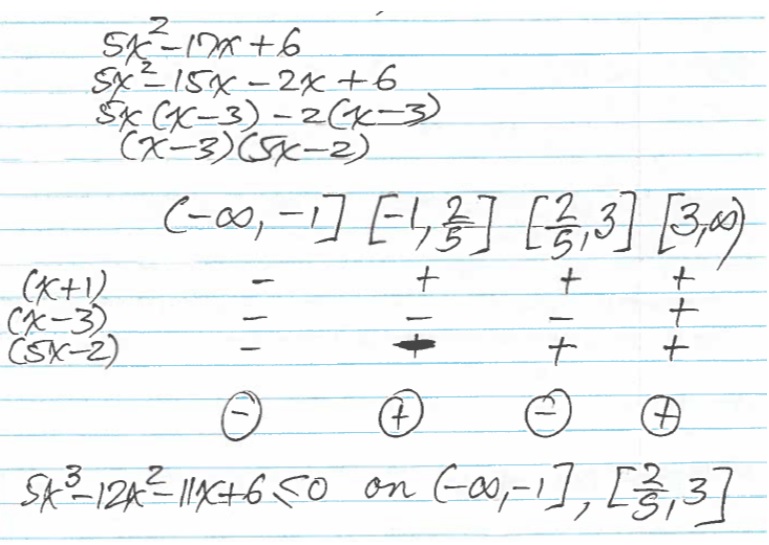 5x²-17x+6
5x²-15x-2x+6
5x(x-3)-2(x-3)
(x-3)(5x-2)
(-∞,-1] [-1,2/5] [2/5,3] [3,∞)
(x+1) - + + +
(x-3) - - - +
(5x-2) - + +
⊖ ⊕ ⊖ ⊕
5x³-12x²-11x+6≤0 on (-∞,-1], [2/5,3]